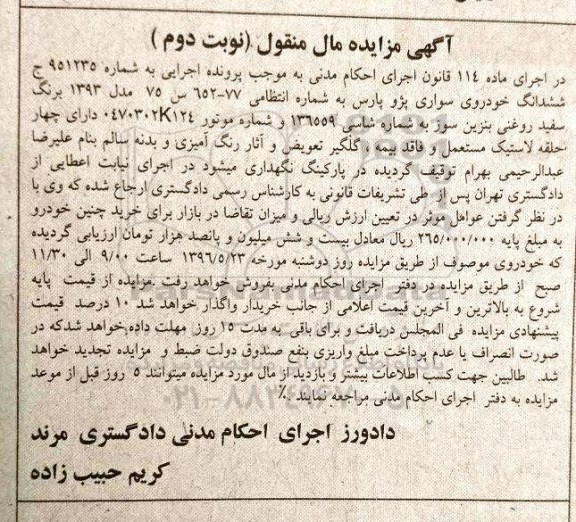 آگهی مزایده مال منقول (نوبت دوم )
در اجرای ماده ۱۱٤ قانون اجرای احکام مدنی به موجب پرونده اجرایی به شماره ۹۵۱۲۳۵ ج
ششدانگ خودروی سواری پژو پارس به شماره انتظامی ۷۷-٦۵۲ س ۷۵ مدل ۱۳۹۳ برنگ
سفید روغنی بنزین سوز به شماره شاسی ۱۳٦۵۵۹ و شماره موتور ۰٤۷۰۳۰۲K۱۲٤ دارای چهار
حلقه لاستیک مستعمل و فاقد بیمه ، گلگیر تعویض و آثار رنگ آمیزی و بدنه سالم بنام علیرضا
عبدالرحیمی بهرام توقیف گردیده در پارکینگ نگهداری میشود در اجرای نیابت اعطایی از
دادگستری تهران پس از طی تشریفات قانونی به کارشناس رسمی دادگستری ارجاع شده که وی با
در نظر گرفتن عوامل موثر در تعیین ارزش ریالی و میزان تقاضا در بازار برای خرید چنین خودرو
به مبلغ پایه ۲٦۵/۰۰۰/۰۰۰ ریال معادل بیست و شش میلیون و پانصد هزار تومان ارزیابی گردیده
که خودروی موصوف از طریق مزایده روز دوشنبه مورخه ۱۳۹٦/۵/۲۳ ساعت ۹/۰۰ الی ۱۱/۳۰
صبح از طریق مزایده در دفتر اجرای احکام مدنی بفروش خواهد رفت .مزایده از قیمت پایه
شروع به بالاترین و آخرین قیمت اعلامی از جانب خریدار واگذار خواهد شد ۱۰ درصد قیمت
پیشنهادی مزایده فی المجلس دریافت و برای باقی به مدت ۱۵ روز مهلت داده خواهد شدکه در
صورت انصراف یا عدم پرداخت مبلغ واریزی بنفع صندوق دولت ضبط و مزایده تجدید خواهد
شد. طالبین جهت کسب اطلاعات بیشتر و بازدید از مال مورد مزایده میتوانند ۵ روز قبل از موعد
مزایده به دفتر اجرای احکام مدنی مراجعه نمایند ٪
دادورز اجرای احکام مدنی دادگستری مرند
کریم حبیب زاده